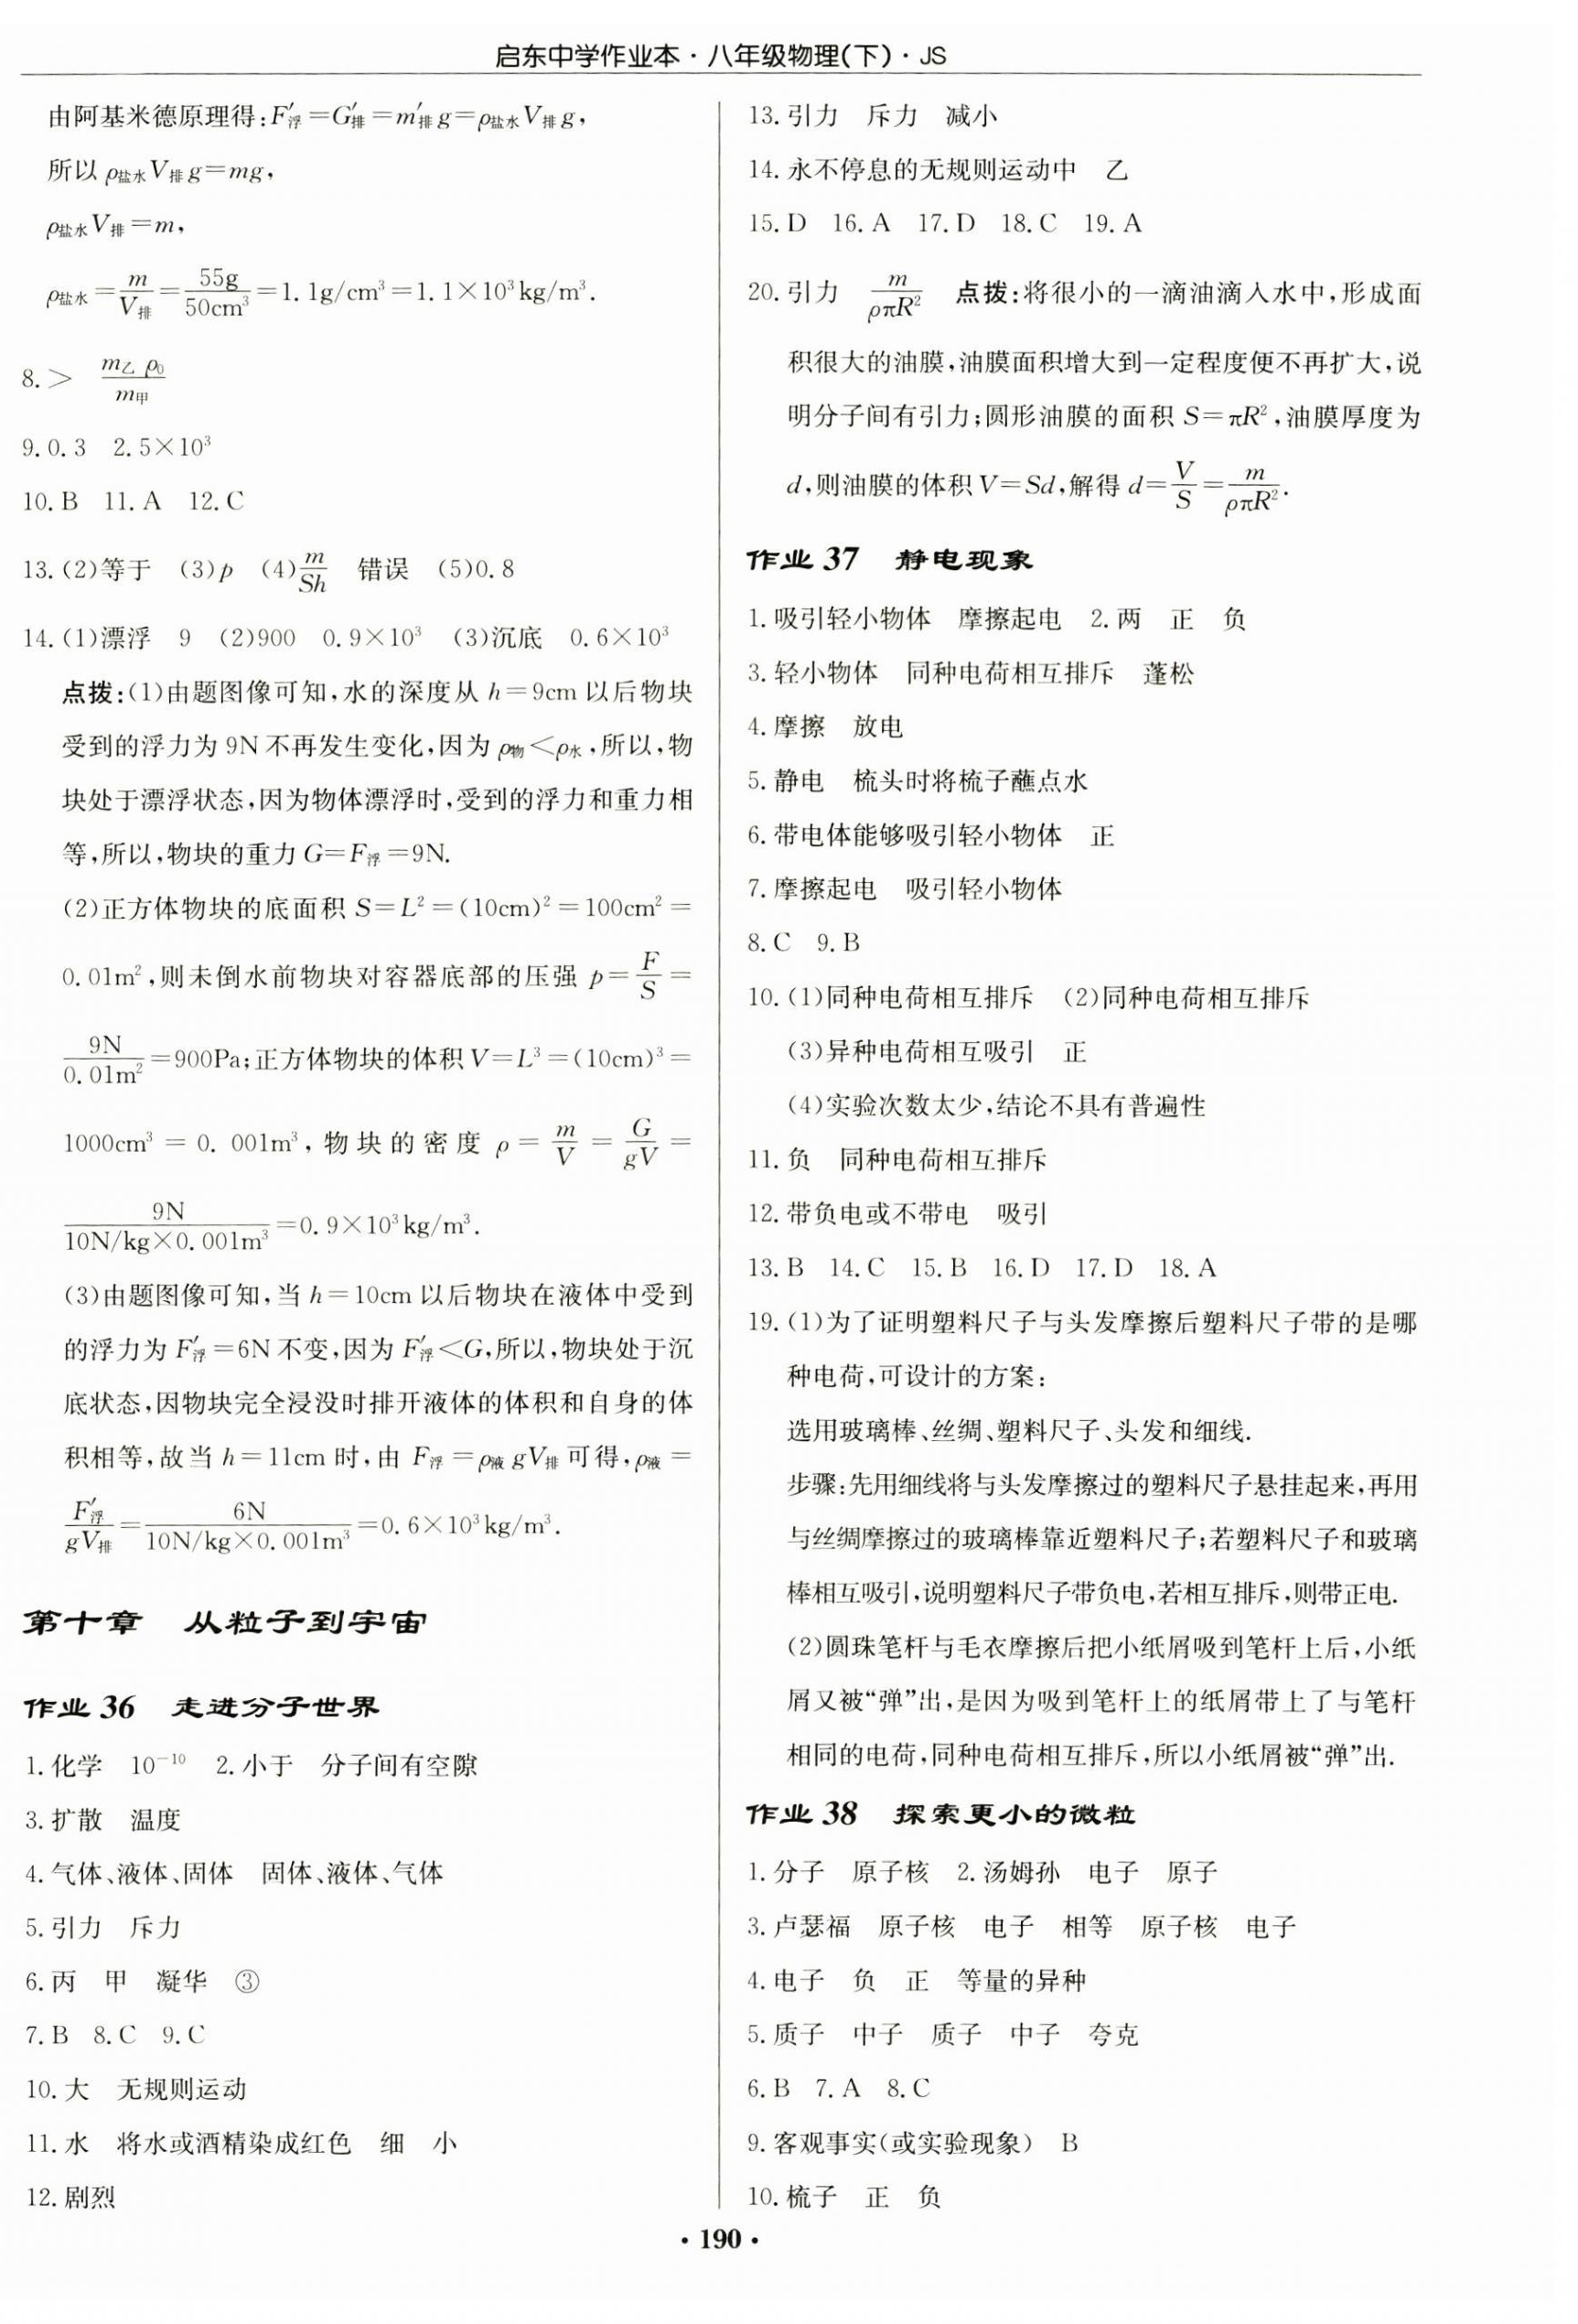 启东中学作业本·八年级物理(下)·JS
由阿基米德原理得:F′浮=G′排=m′排g=ρ盐水V排g,
所以ρ盐水V排g=mg,
ρ盐水V排=m,
ρ盐水=m/V排=55g/50cm³=1.1g/cm³=1.1×10³kg/m³.
8.> m乙ρ0/m甲
9.0.3 2.5×10³
10.B 11.A 12.C
13.(2)等于 (3)p (4)m/Sh 错误 (5)0.8
14.(1)漂浮 9 (2)900 0.9×10³ (3)沉底 0.6×10³
点拨:(1)由题图像可知,水的深度从h=9cm以后物块
受到的浮力为9N不再发生变化,因为ρ物<ρ水,所以,物
块处于漂浮状态,因为物体漂浮时,受到的浮力和重力相
等,所以,物块的重力G=F浮=9N.
(2)正方体物块的底面积S=L²=(10cm)²=100cm²=
0.01m²,则未倒水前物块对容器底部的压强p=F/S=
9N/0.01m²=900Pa;正方体物块的体积V=L³=(10cm)³=
1000cm³=0.001m³,物块的密度ρ=m/V=G/gV=
9N/10N/kg×0.001m³=0.9×10³kg/m³.
(3)由题图像可知,当h=10cm以后物块在液体中受到
的浮力为F′浮=6N不变,因为F′浮<G,所以,物块处于沉
底状态,因物块完全浸没时排开液体的体积和自身的体
积相等,故当h=11cm时,由F浮=ρ液gV排可得,ρ液=
F′浮/gV排=6N/10N/kg×0.001m³=0.6×10³kg/m³.
第十章 从粒子到宇宙
作业36 走进分子世界
1.化学 10⁻¹⁰ 2.小于 分子间有空隙
3.扩散 温度
4.气体、液体、固体 固体、液体、气体
5.引力 斥力
6.丙 甲 凝华 ③
7.B 8.C 9.C
10.大 无规则运动
11.水 将水或酒精染成红色 细 小
12.剧烈
13.引力 斥力 减小
14.永不停息的无规则运动中 乙
15.D 16.A 17.D 18.C 19.A
20.引力 m/ρπR² 点拨:将很小的一滴油滴入水中,形成面
积很大的油膜,油膜面积增大到一定程度便不再扩大,说
明分子间有引力;圆形油膜的面积S=πR²,油膜厚度为
d,则油膜的体积V=Sd,解得d=V/S=m/ρπR².
作业37 静电现象
1.吸引轻小物体 摩擦起电 2.两 正 负
3.轻小物体 同种电荷相互排斥 蓬松
4.摩擦 放电
5.静电 梳头时将梳子蘸点水
6.带电体能够吸引轻小物体 正
7.摩擦起电 吸引轻小物体
8.C 9.B
10.(1)同种电荷相互排斥 (2)同种电荷相互排斥
(3)异种电荷相互吸引 正
(4)实验次数太少,结论不具有普遍性
11.负 同种电荷相互排斥
12.带负电或不带电 吸引
13.B 14.C 15.B 16.D 17.D 18.A
19.(1)为了证明塑料尺子与头发摩擦后塑料尺子带的是哪
种电荷,可设计的方案:
选用玻璃棒、丝绸、塑料尺子、头发和细线.
步骤:先用细线将与头发摩擦过的塑料尺子悬挂起来,再用
与丝绸摩擦过的玻璃棒靠近塑料尺子;若塑料尺子和玻璃
棒相互吸引,说明塑料尺子带负电,若相互排斥,则带正电.
(2)圆珠笔杆与毛衣摩擦后把小纸屑吸到笔杆上后,小纸
屑又被“弹”出,是因为吸到笔杆上的纸屑带上了与笔杆
相同的电荷,同种电荷相互排斥,所以小纸屑被“弹”出.
作业38 探索更小的微粒
1.分子 原子核 2.汤姆孙 电子 原子
3.卢瑟福 原子核 电子 相等 原子核 电子
4.电子 负 正 等量的异种
5.质子 中子 质子 中子 夸克
6.B 7.A 8.C
9.客观事实(或实验现象) B
10.梳子 正 负
·190·